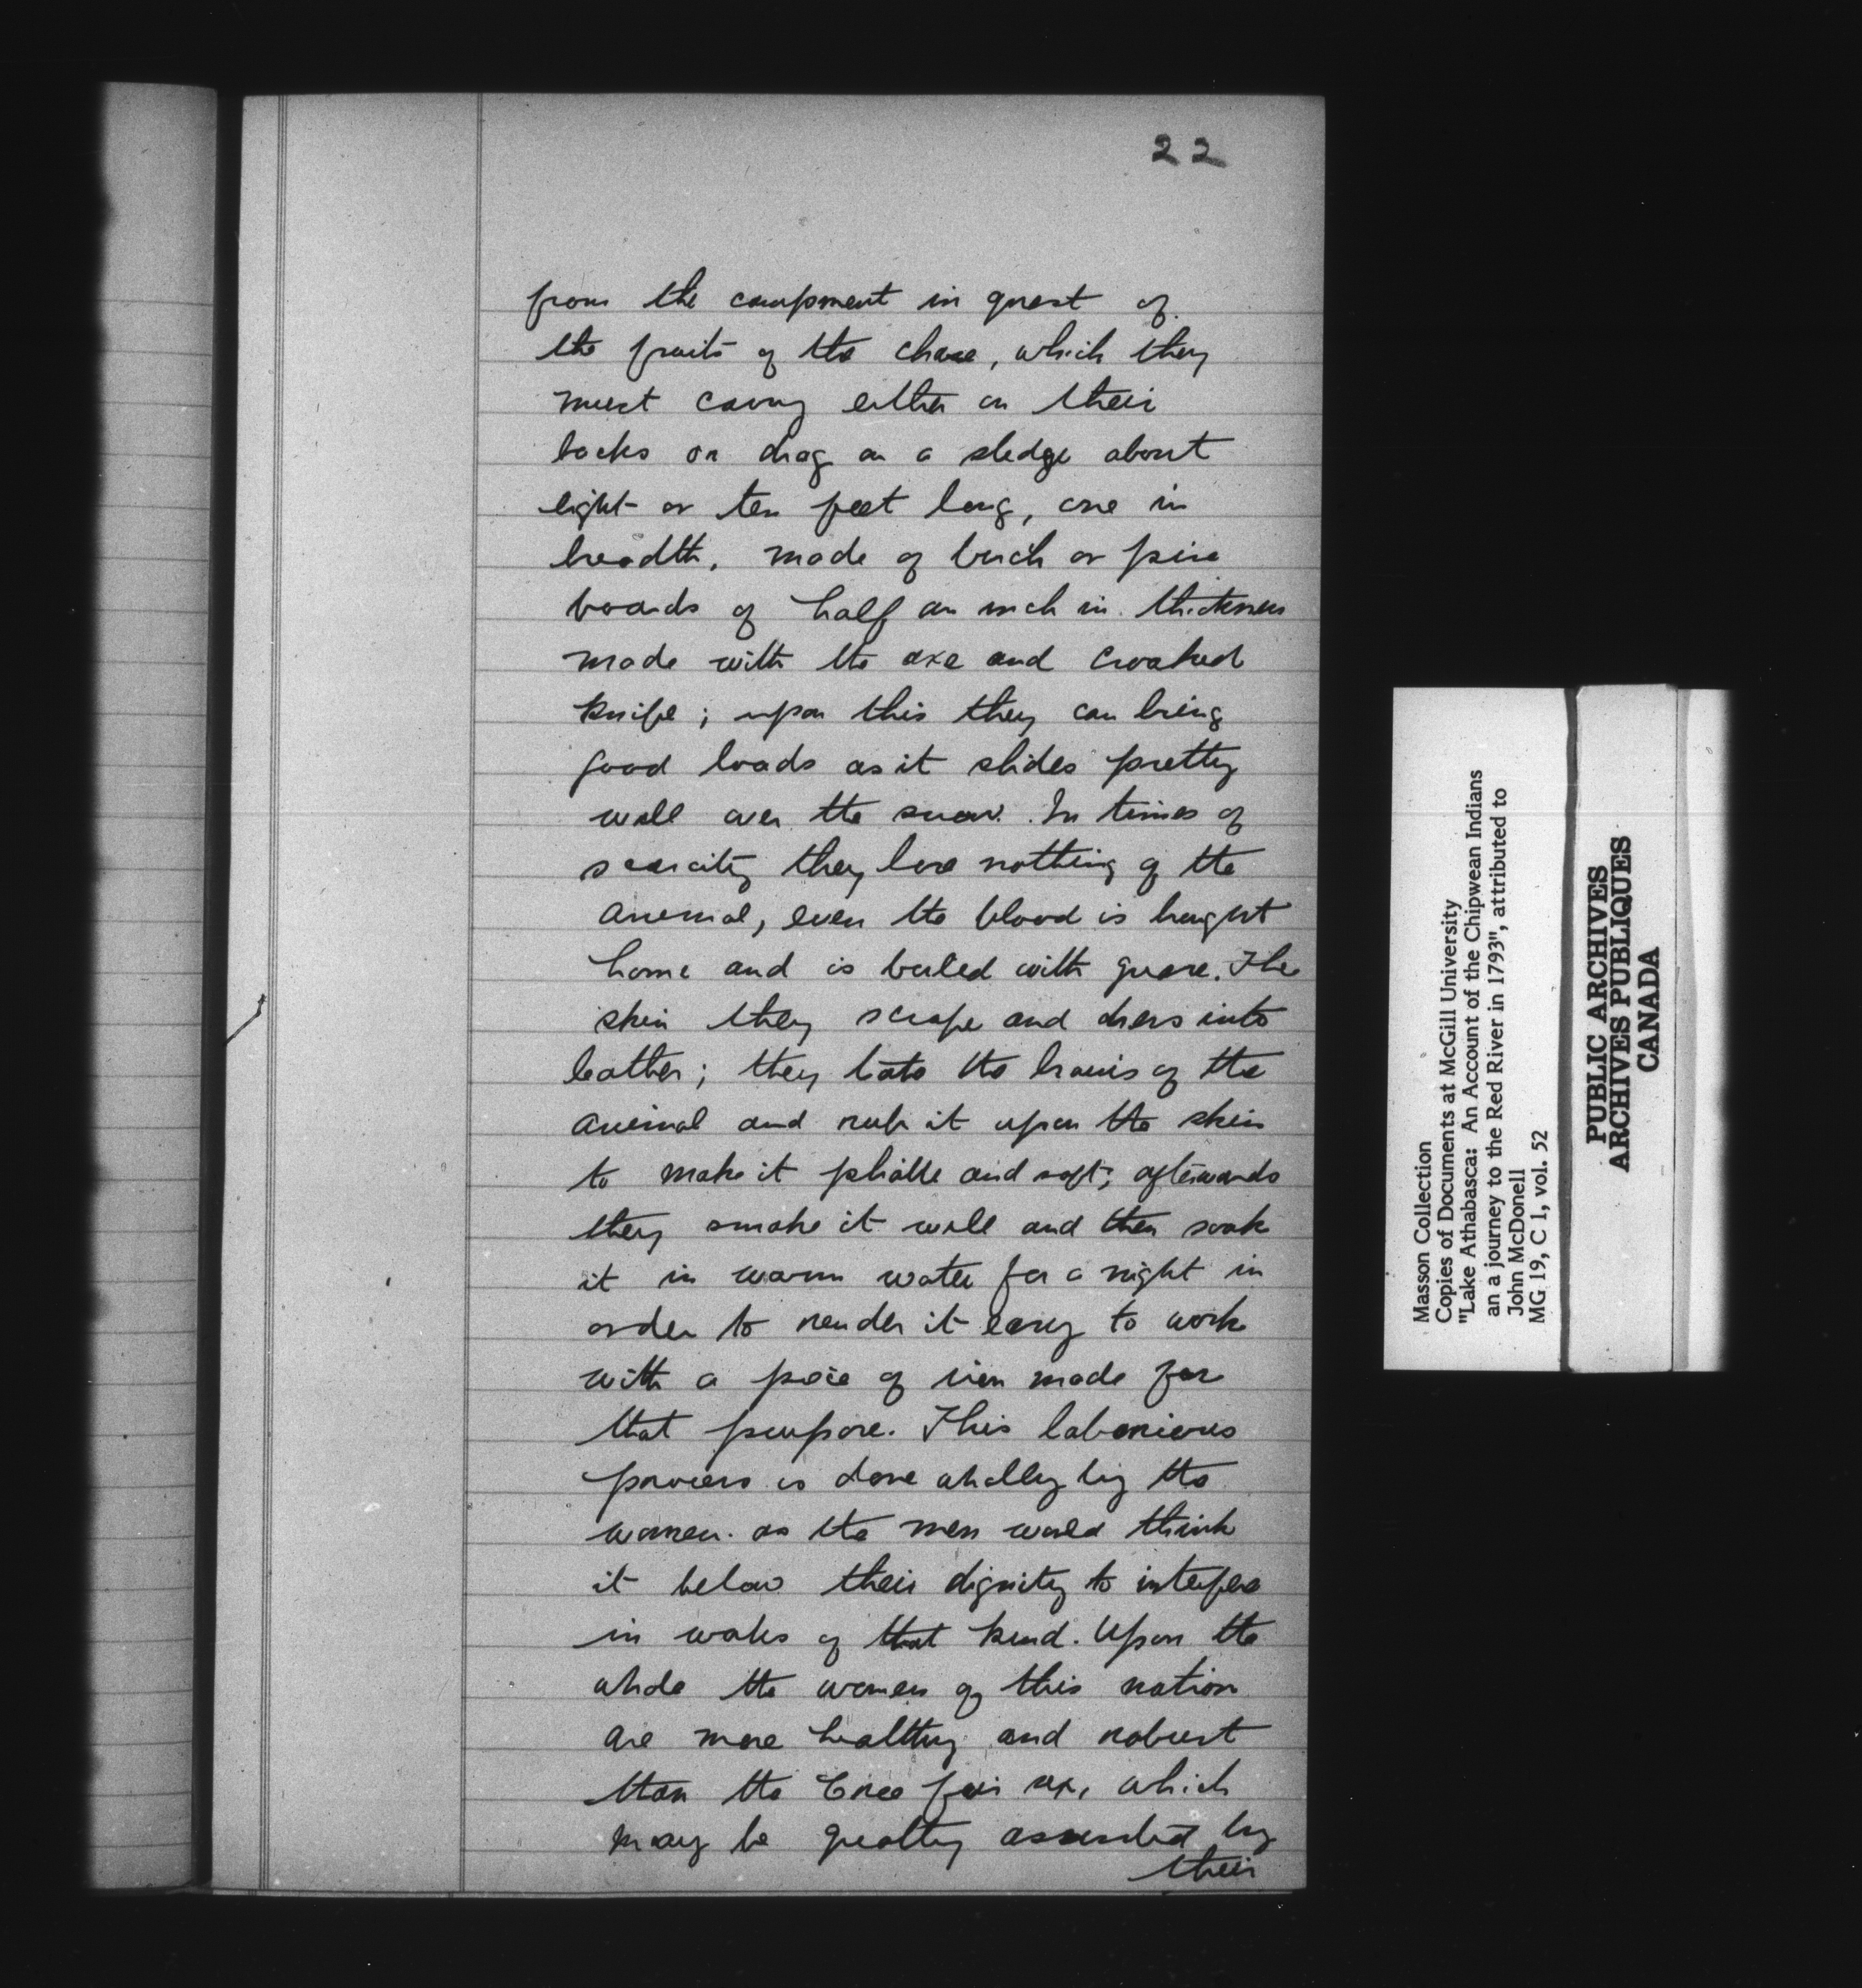 22
from the campment in quest of
the fruits of the chase, which they
must carry either on their
backs or drag on a sledge about
eight or ten feet long, one in
breadth, made of birch or pine
boards of half an inch in thickness
made with the axe and crooked
knife; upon this they can bring
good loads as it slides pretty
well over the snow. In times of
scarcity they lose nothing of the
animal, even the blood is brought
home and is boiled with grease. The
skin they scrape and dress into
leather; they take the brains of the
animal and rub it upon the skin
to make it pliable and soft; afterwards
they smoke it well and then soak
it in warm water for a night in
order to render it easy to work
with a piece of iron made for
that purpose. This laborious
process is done wholly by the
women. as the men would think
it below their dignity to interfere
in works of that kind. Upon the
whole the women of this nation
are more healthy and robust
than the Cree fair sex, which
may be greatly assisted by
their
Masson Collection
Copies of Documents at McGill University
"Lake Athabasca: An Account of the Chipwean Indians
an a journey to the Red River in 1793", attributed to
John McDonell
MG 19, C 1, vol. 52
PUBLIC ARCHIVES
ARCHIVES PUBLIQUES
CANADA